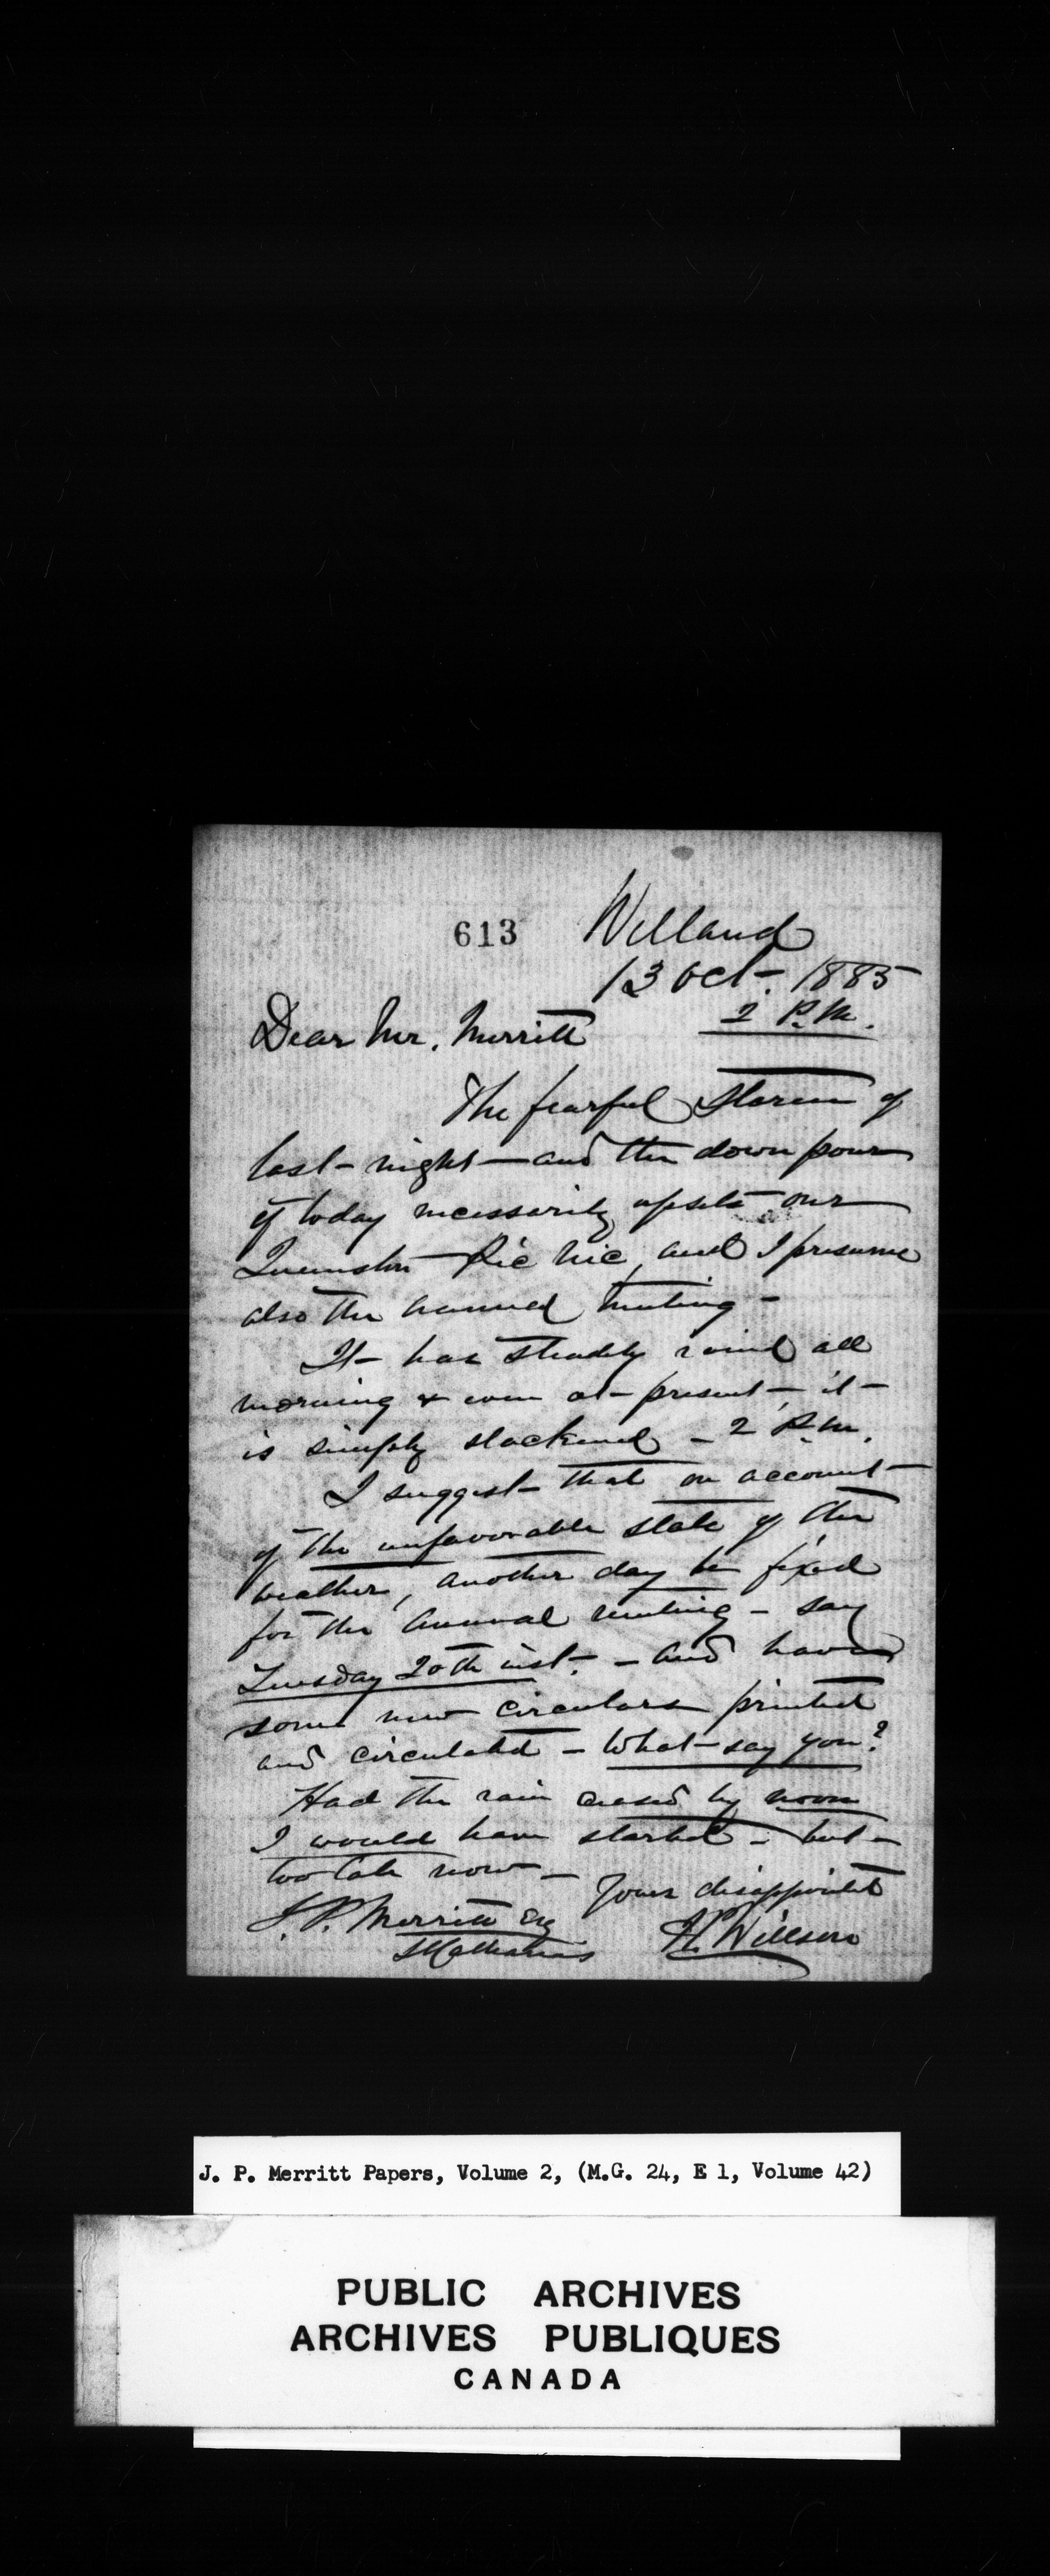 613
Welland
13 Oct. 1885
2 P.M.
Dear Mr. Merritt
The fearful storm of
last night — and the down pour
of today necessarily upsets our
Queenston Pic Nic, and I presume
also the annual meeting —
It has steadily raind all
morning & even at present, it
is simply slackened — 2 P.M.
I suggest that on account
of the unfavorable state of the
weather, another day be fixed
for the annual meeting — say
Tuesday 20th inst. — and have
some new circulars printed
and circulated — What say you?
Had the rain ceased by noon
I would have started — but
too late now —
Yours disappointed
J. P. Merritt Esq
St Catharines
H. Willson
J. P. Merritt Papers, Volume 2, (M.G. 24, E 1, Volume 42)
PUBLIC ARCHIVES
ARCHIVES PUBLIQUES
CANADA